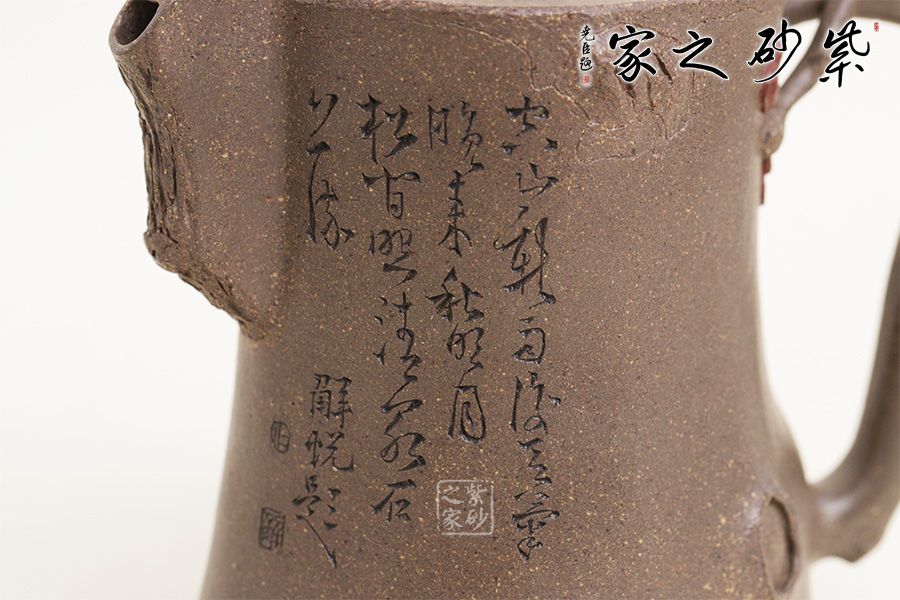 紫砂之家
堯臣題
空山新雨後天氣
晚来秋明月
松间照清泉石
上流
解悦題
紫砂之家